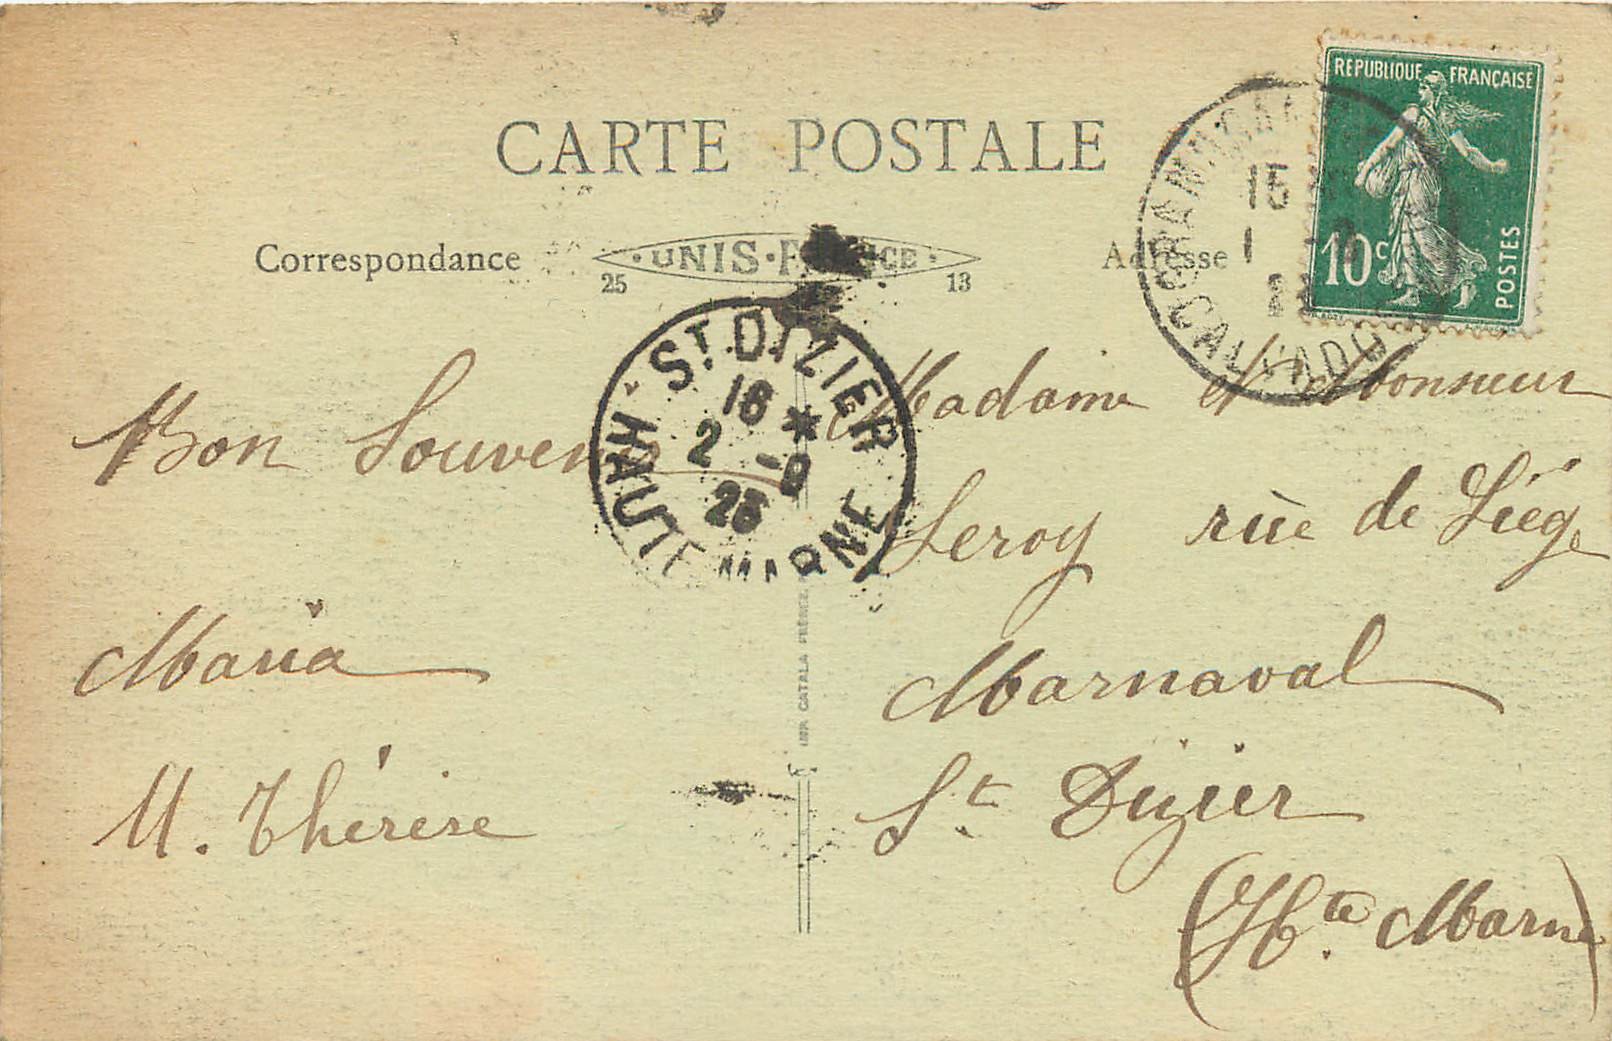 CARTE POSTALE
Correspondance
· UNIS · FRANCE ·
25 13
Adresse
REPUBLIQUE FRANÇAISE
10c
POSTES
GRANDCAMP
15
CALVADOS
ST DIZIER
16 *
2 -9
25
HAUTE MARNE
Bon Souvenir
Maria
M. Thérèse
Madame et Monsieur
Leroy rue de Liége
Marnaval
St Dizier
(Hte Marne)
IMP. CATALA FRÈRES,